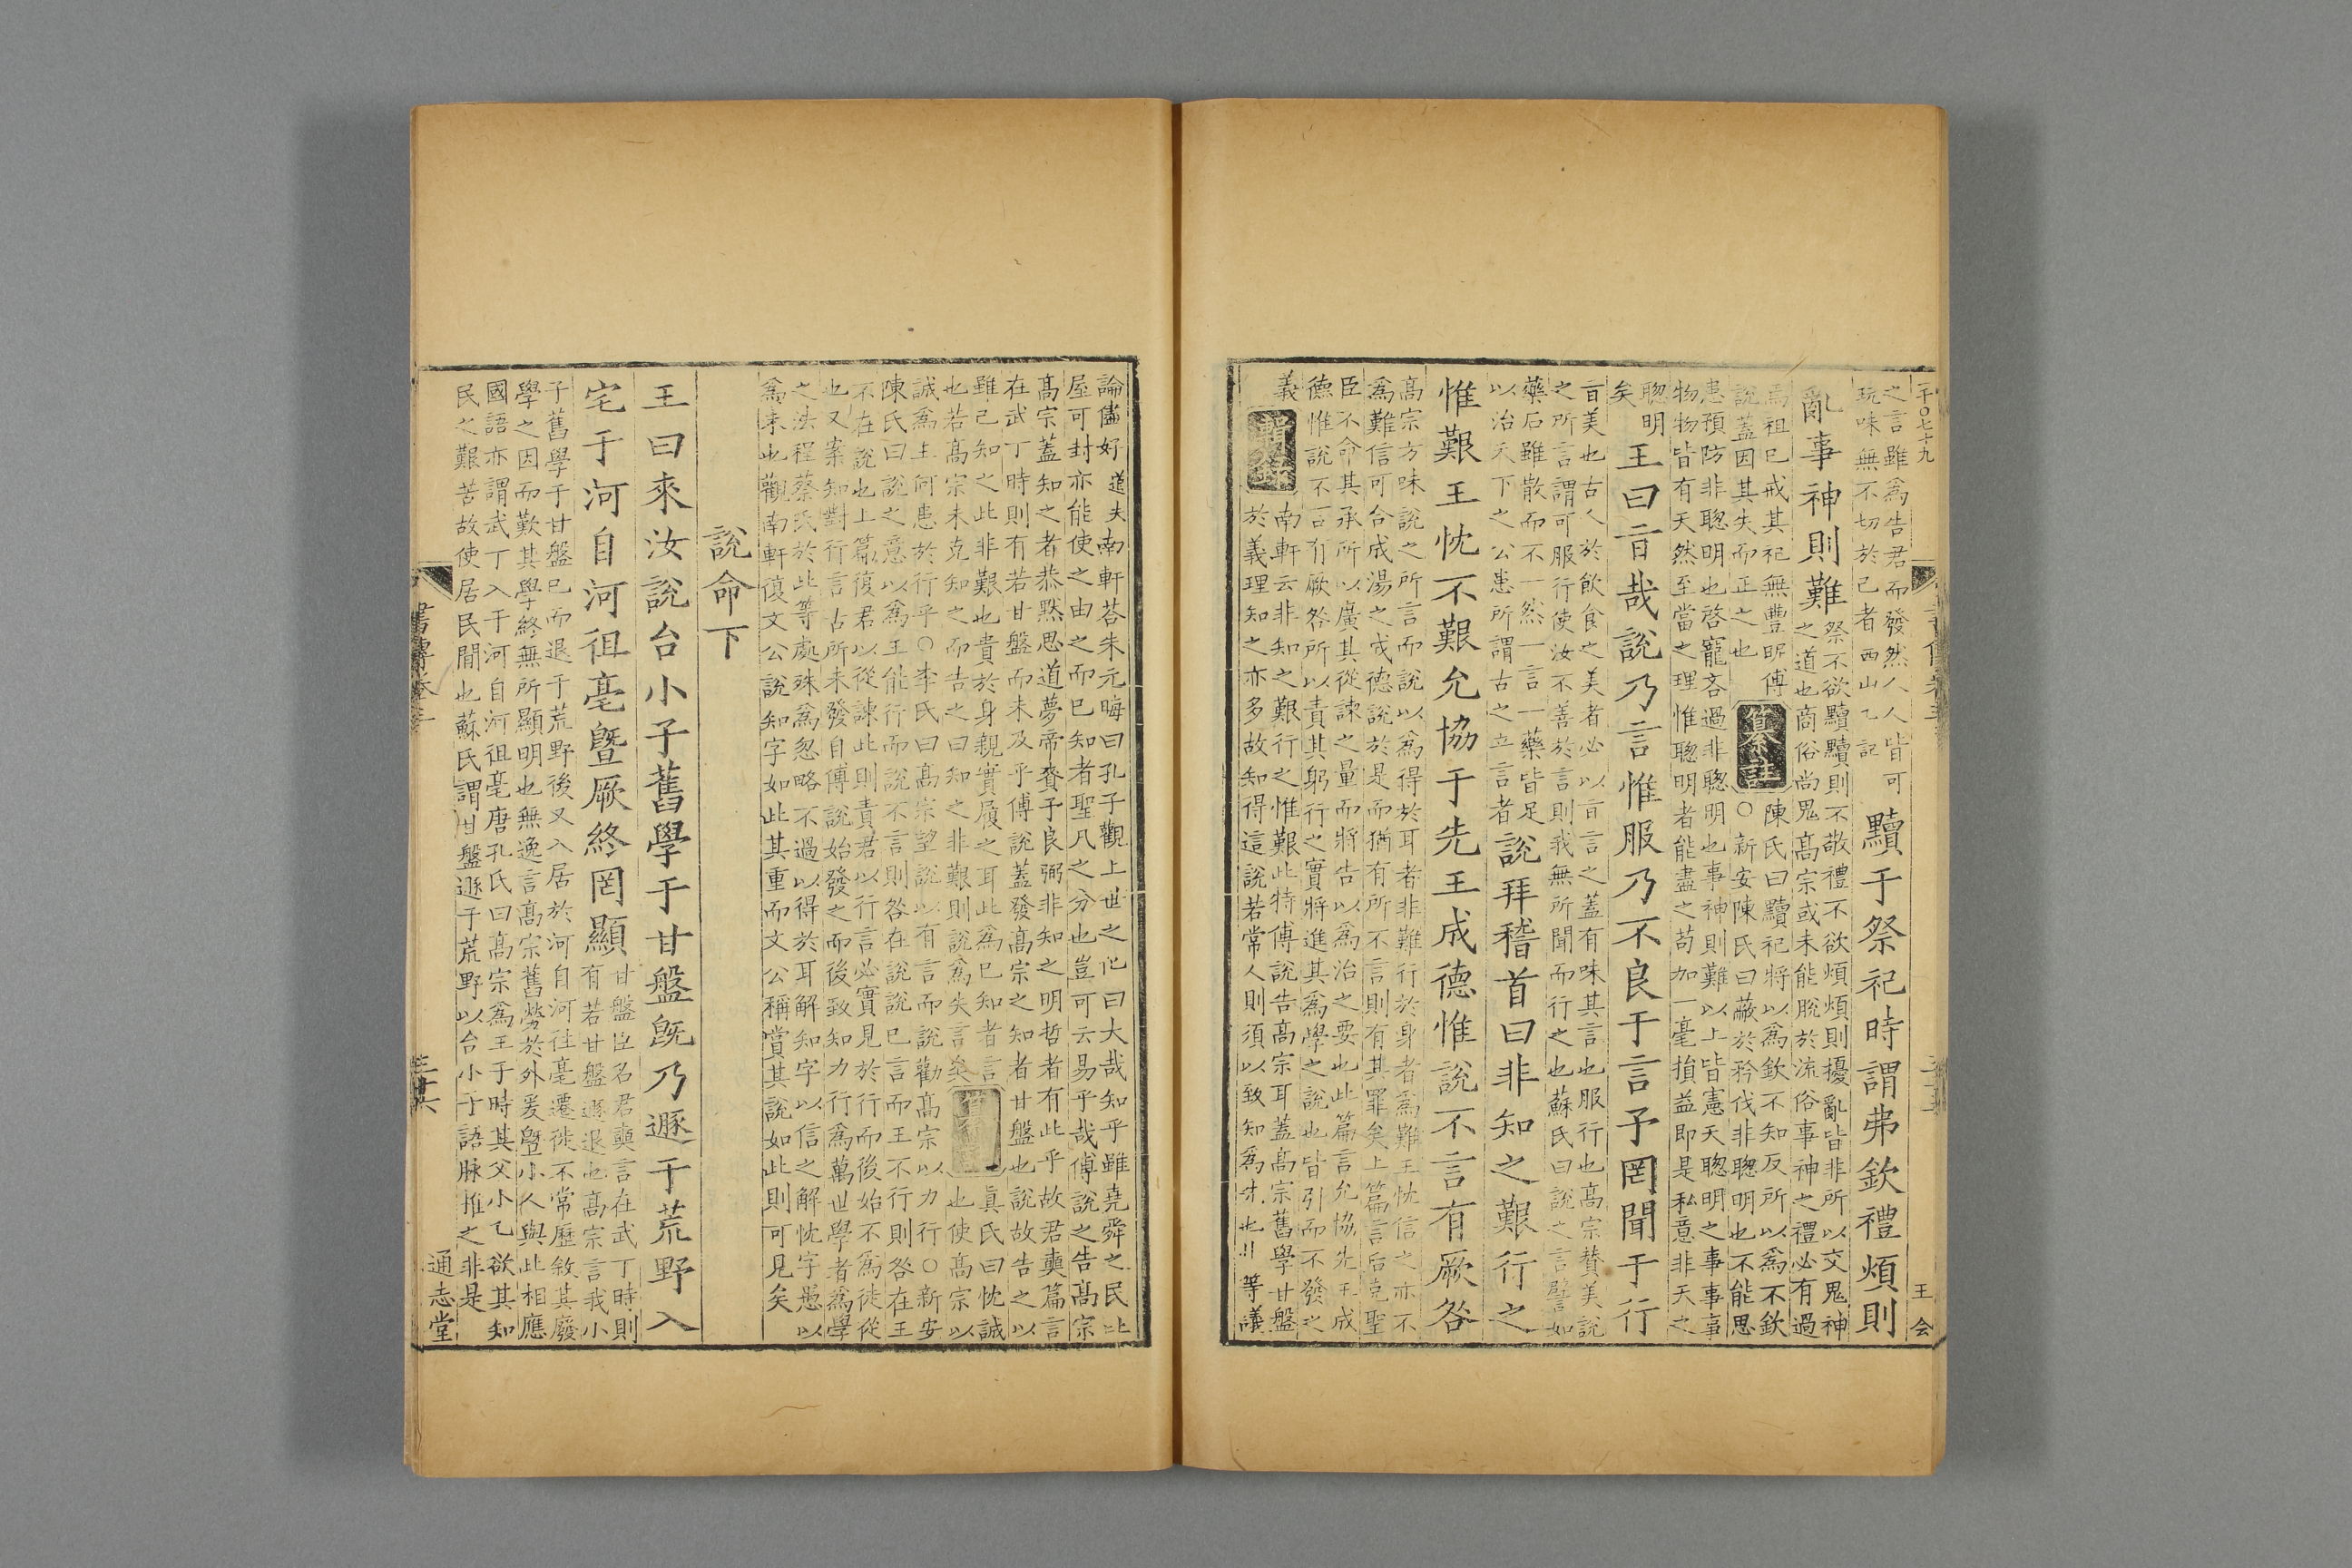 之言雖爲告君而發然人人皆可
玩味無不切於己者西山乙記
黷于祭祀時謂弗欽禮煩則
亂事神則難
祭不欲黷黷則不敬禮不欲煩煩則擾亂皆非所以交鬼神
之道也商俗尚鬼高宗或未能脫於流俗事神之禮必有過
焉祖已戒其祀無豐昵傅
說蓋因其失而正之也
纂註
陳氏曰黷祀將以爲欽不知反所以爲不欽
○新安陳氏曰蔽於矜伐非聰明也不能思
患預防非聰明也啓寵吝過非聰明也事神則難以上皆憲天聰明之事事事
物物皆有天然至當之理惟聰明者能盡之苟加一毫損益即是私意非天之
聰明
矣
王曰旨哉說乃言惟服乃不良于言予罔聞于行
旨美也古人於飲食之美者必以旨言之蓋有味其言也服行也高宗贊美說
之所言謂可服行使汝不善於言則我無所聞而行之也蘇氏曰說之言譬如
藥石雖散而不一然一言一藥皆足
以治天下之公患所謂古之立言者
說拜稽首曰非知之艱行之
惟艱王忱不艱允協于先王成德惟說不言有厥咎
高宗方味說之所言而說以爲得於耳者非難行於身者爲難王忱信之亦不
爲難信可合成湯之成德說於是而猶有所不言則有其罪矣上篇言后克聖
臣不命其承所以廣其從諫之量而將告以爲治之要也此篇言允協先王成
德惟說不言有厥咎所以責其躬行之實將進其爲學之說也皆引而不發之
義
輯錄
南軒云非知之艱行之惟艱此特傅說告高宗耳蓋高宗舊學甘盤
於義理知之亦多故知得這說若常人則須以致知爲先也此等議
論儘好道夫南軒荅朱元晦曰孔子觀上世之化曰大哉知乎雖堯舜之民比
屋可封亦能使之由之而已知者聖凡之分也豈可云易乎哉傅說之告高宗
高宗蓋知之者恭默思道夢帝賚予良弼非知之明哲者有此乎故君奭篇言
在武丁時則有若甘盤而未及乎傅說蓋發高宗之知者甘盤也說故告之以
雖已知之此非艱也貴於身親實履之耳此爲已知者言
也若高宗未克知之而告之曰知之非艱則說爲失言矣
纂註
眞氏曰忱誠
也使高宗以
誠爲主何患於行乎○李氏曰高宗望說以有言而說勸高宗以力行○新安
陳氏曰說之意以爲王能行而說不言則咎在說說已言而王不行則咎在王
不在說也上篇復君以從諫此則責君以行言必實見於行而後始不爲徒從
也又案知對行言古所未發自傅說始發之而後致知力行爲萬世學者爲學
之法程蔡氏於此等處殊爲忽略不過以得於耳解知字以信之解忱字愚以
爲未也觀南軒復文公說知字如此其重而文公稱賞其說如此則可見矣
說命下
王曰來汝說台小子舊學于甘盤旣乃遯于荒野入
宅于河自河徂亳曁厥終罔顯
甘盤臣名君奭言在武丁時則
有若甘盤遯退也高宗言我小
子舊學于甘盤已而退于荒野後又入居於河自河往亳遷徙不常歷敘其廢
學之因而歎其學終無所顯明也無逸言高宗舊勞於外爰曁小人與此相應
國語亦謂武丁入于河自河徂亳唐孔氏曰高宗爲王子時其父小乙欲其知
民之艱苦故使居民間也蘇氏謂甘盤遯于荒野以台小子語脉推之非是
通志堂